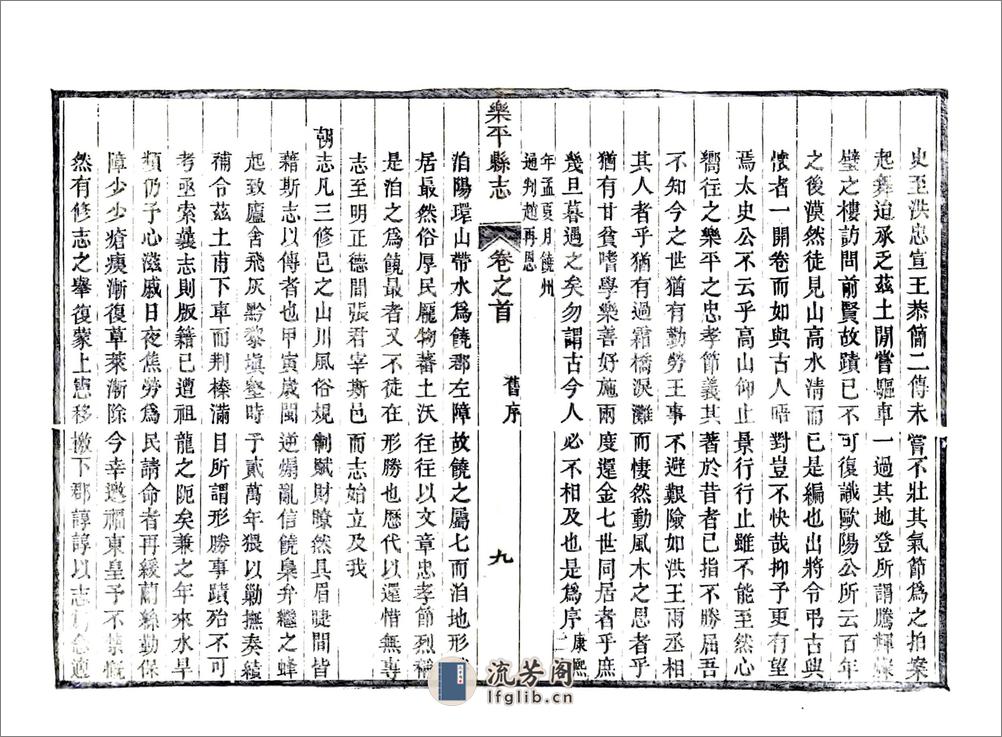 史至洪忠宣王恭簡二傳未嘗不壯其氣節為之拍案
起舞迨承乏茲土閒嘗驅車一過其地登所謂騰輝
璧之樓訪問前賢故蹟已不可復識歐陽公所云百年
之後漠然徒見山高水清而已是編也出將令弔古與
懷者一開卷而如與古人晤對豈不快哉抑予更有望
焉太史公不云乎高山仰止景行行止雖不能至然心
嚮往之樂平之忠孝節義其著於昔者已指不勝屈吾
不知今之世猶有勤勞王事不避艱險如洪王兩丞相
其人者乎猶有過霜橋淚灘而悽然動風木之思者乎
猶有甘貧嗜學樂善好施兩度還金七世同居者乎庶
幾旦暮遇之矣勿謂古今人必不相及也是為序康熙二
年孟夏月饒州
通判趙再恩
樂平縣志
卷之首
舊序
九
洎陽環山帶水為饒郡左障故饒之屬七而洎地形
居最然俗厚民厖物蕃土沃往往以文章忠孝節烈稱
是洎之為饒最者又不徒在形勝也歷代以還惜無專
志至明正德間張君宰斯邑而志始立及我
朝志凡三修邑之山川風俗規制賦財瞭然具眉睫間皆
藉斯志以傳者也甲寅歲閩逆煽亂信饒梟弁繼之蜂
起致廬舍飛灰黔黎塡壑時予貳萬年猥以勦撫奏績
補令茲土甫下車而荆榛滿目所謂形勝事蹟殆不可
考亟索曩志則版籍已遭祖龍之阨矣兼之年來水旱
頻仍予心滋戚日夜焦勞為民請命者再緩蘭絲勤保
障少少瘡痍漸復草萊漸除今幸邀福東皇予不禁慨
然有修志之舉復蒙上憲移檄下郡諄諄以志為急適
流芳阁
lfglib.cn